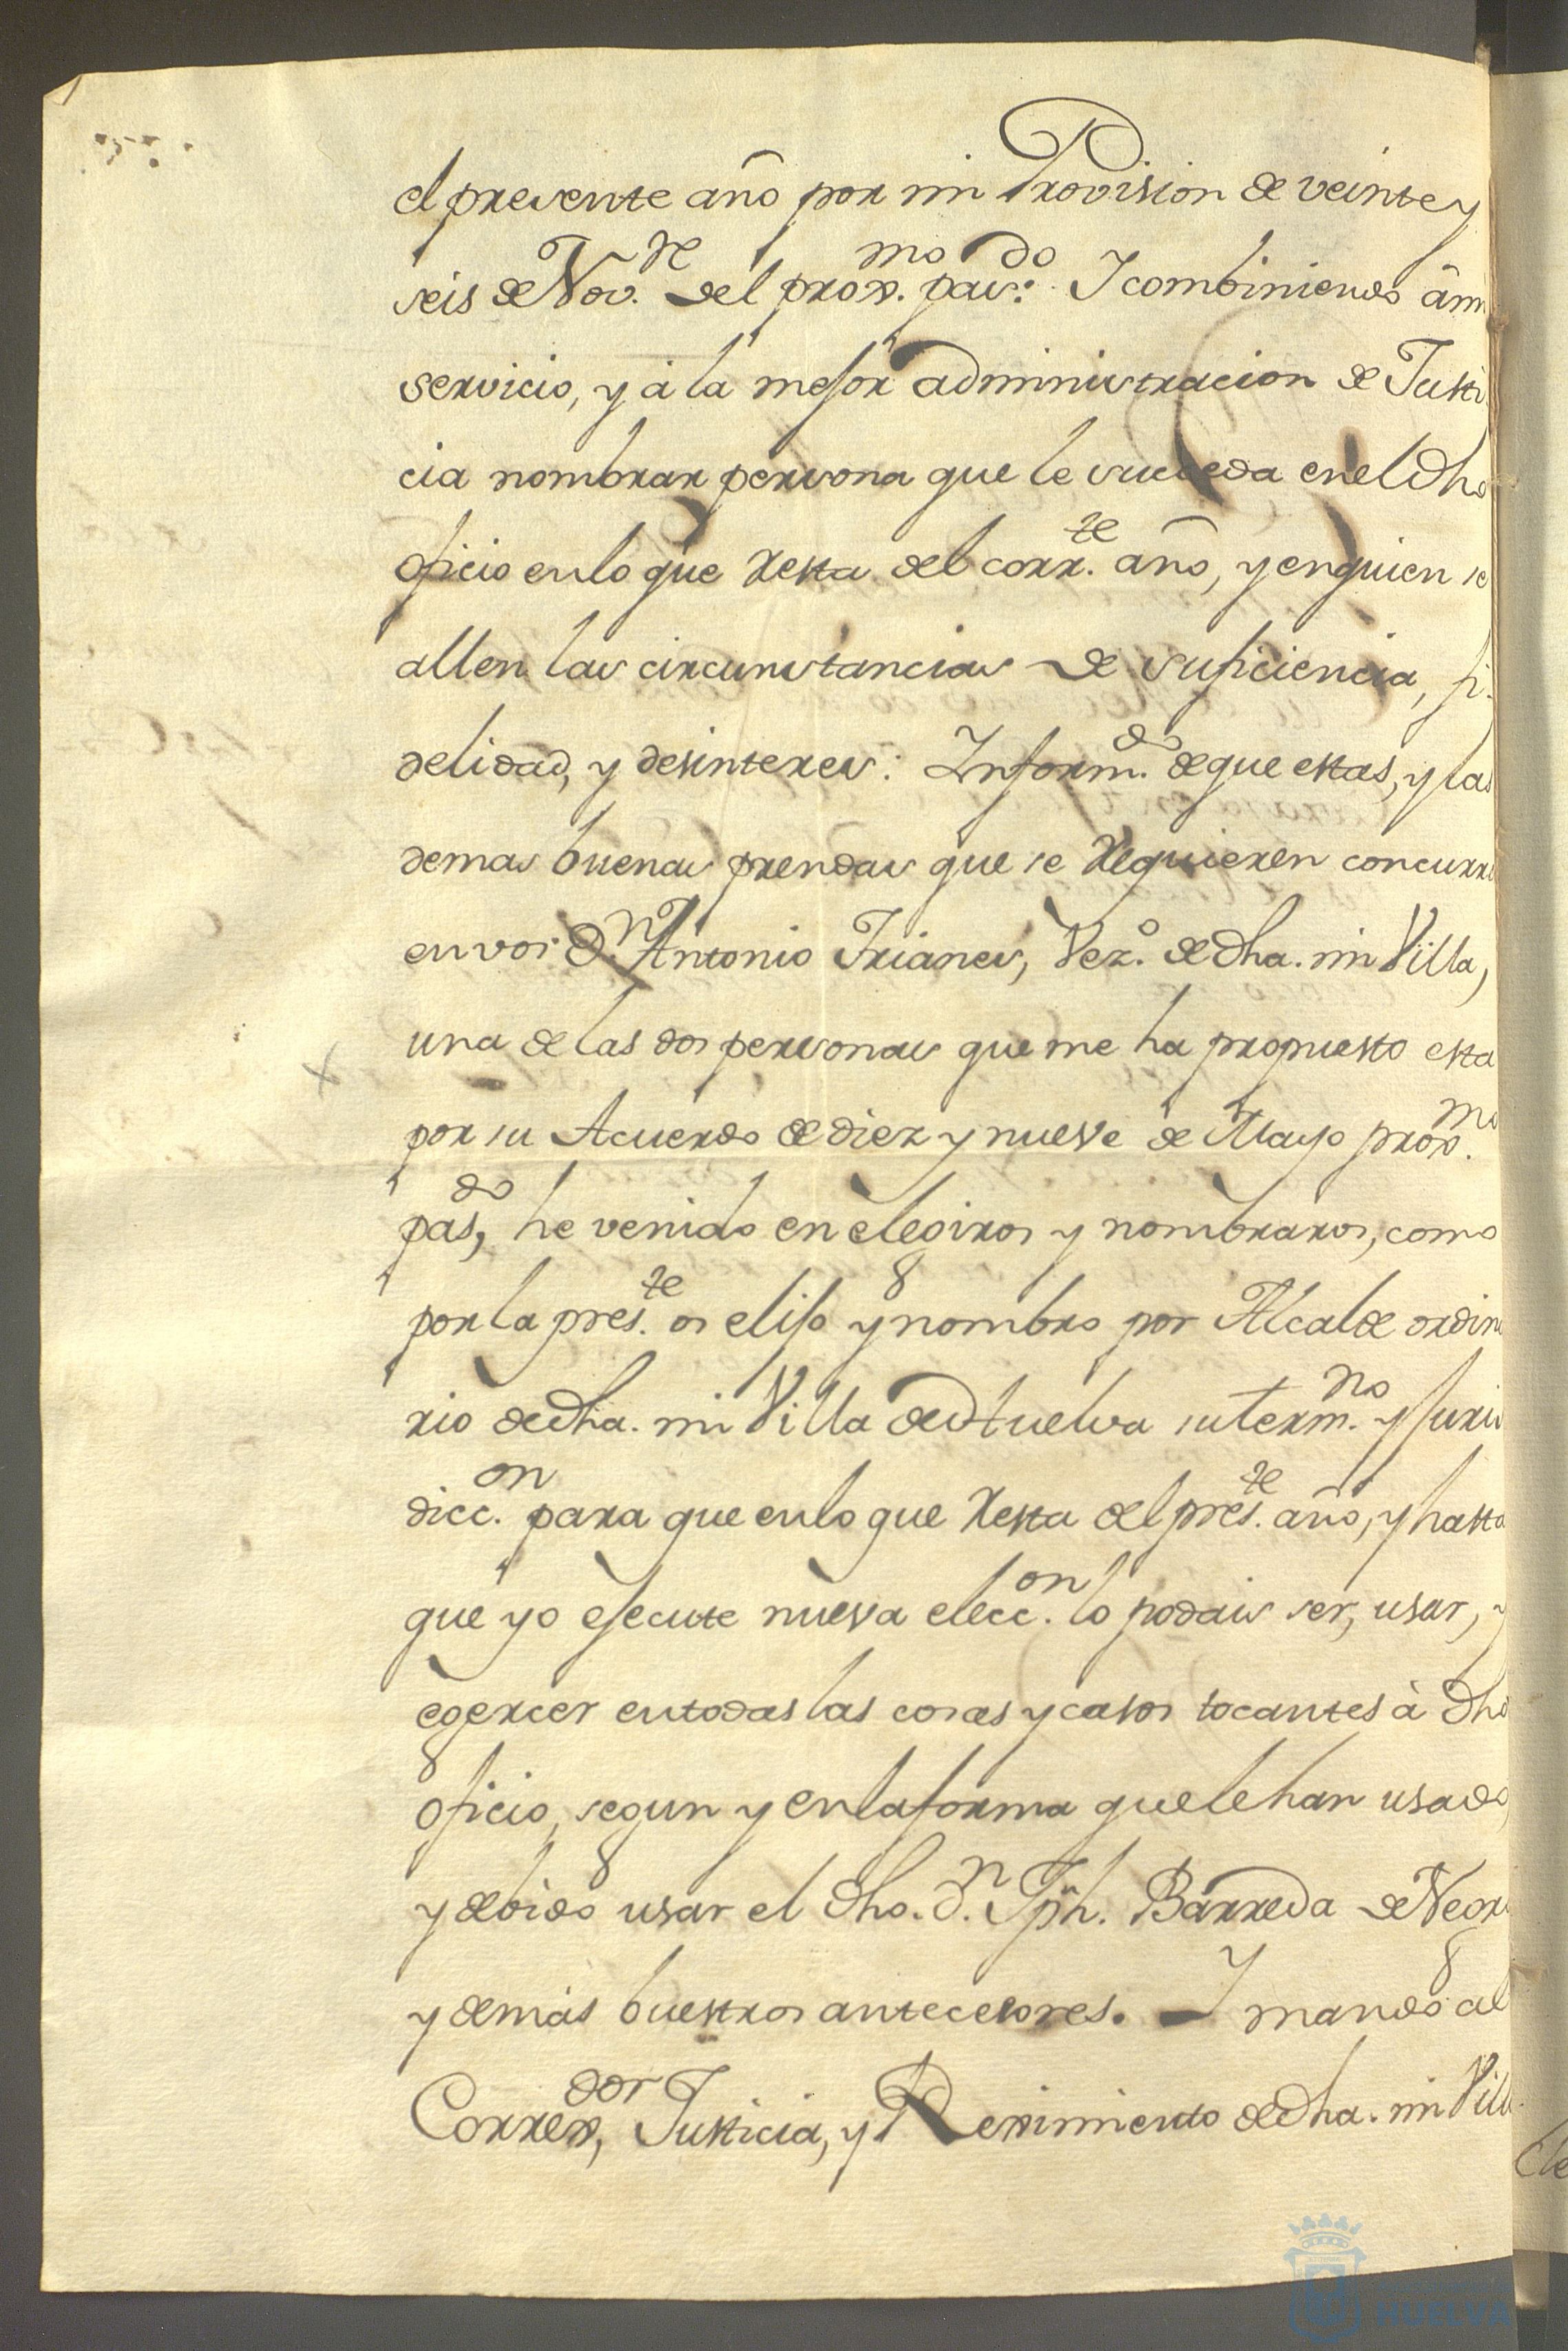 el presente año por mi Provision de veinte y
seis de Nov.re del prox.mo pas.do Y combiniendo â mi
servicio, y à la mejor administracion de Justi
cia nombrar persona que le suceda en el dho
oficio en lo que resta del corr.te año, y en quien se
allen las circunstancias de suficiencia, fi-
delidad, y desinteres: Inform.do de que estas, y las
demas buenas prendas que se requieren concurre
en vos D.n Antonio Trianes, Vez.o de dha. mi Villa,
una de las dos personas que me ha propuesto esta
por su Acuerdo de diez y nueve de Mayo prox.mo
pas.do, he venido en elegiros y nombraros, como
por la pres.te os elijo y nombro por Alcalde ordina
rio de dha. mi Villa de Huelva su term.no y juris
dicc.on para que en lo que resta del pres.te año, y hasta
que yo ejecute nueva elecc.on lo podais ser, usar, y
egercer en todas las cosas y casos tocantes à dho
oficio, segun y en la forma que le han usado
y debido usar el dho. d.n Jph. Barreda de Negr
y demás buestros antecesores. Y mando al
Correx.dor, Justicia, y Reximiento de dha. mi Villa
HUELVA